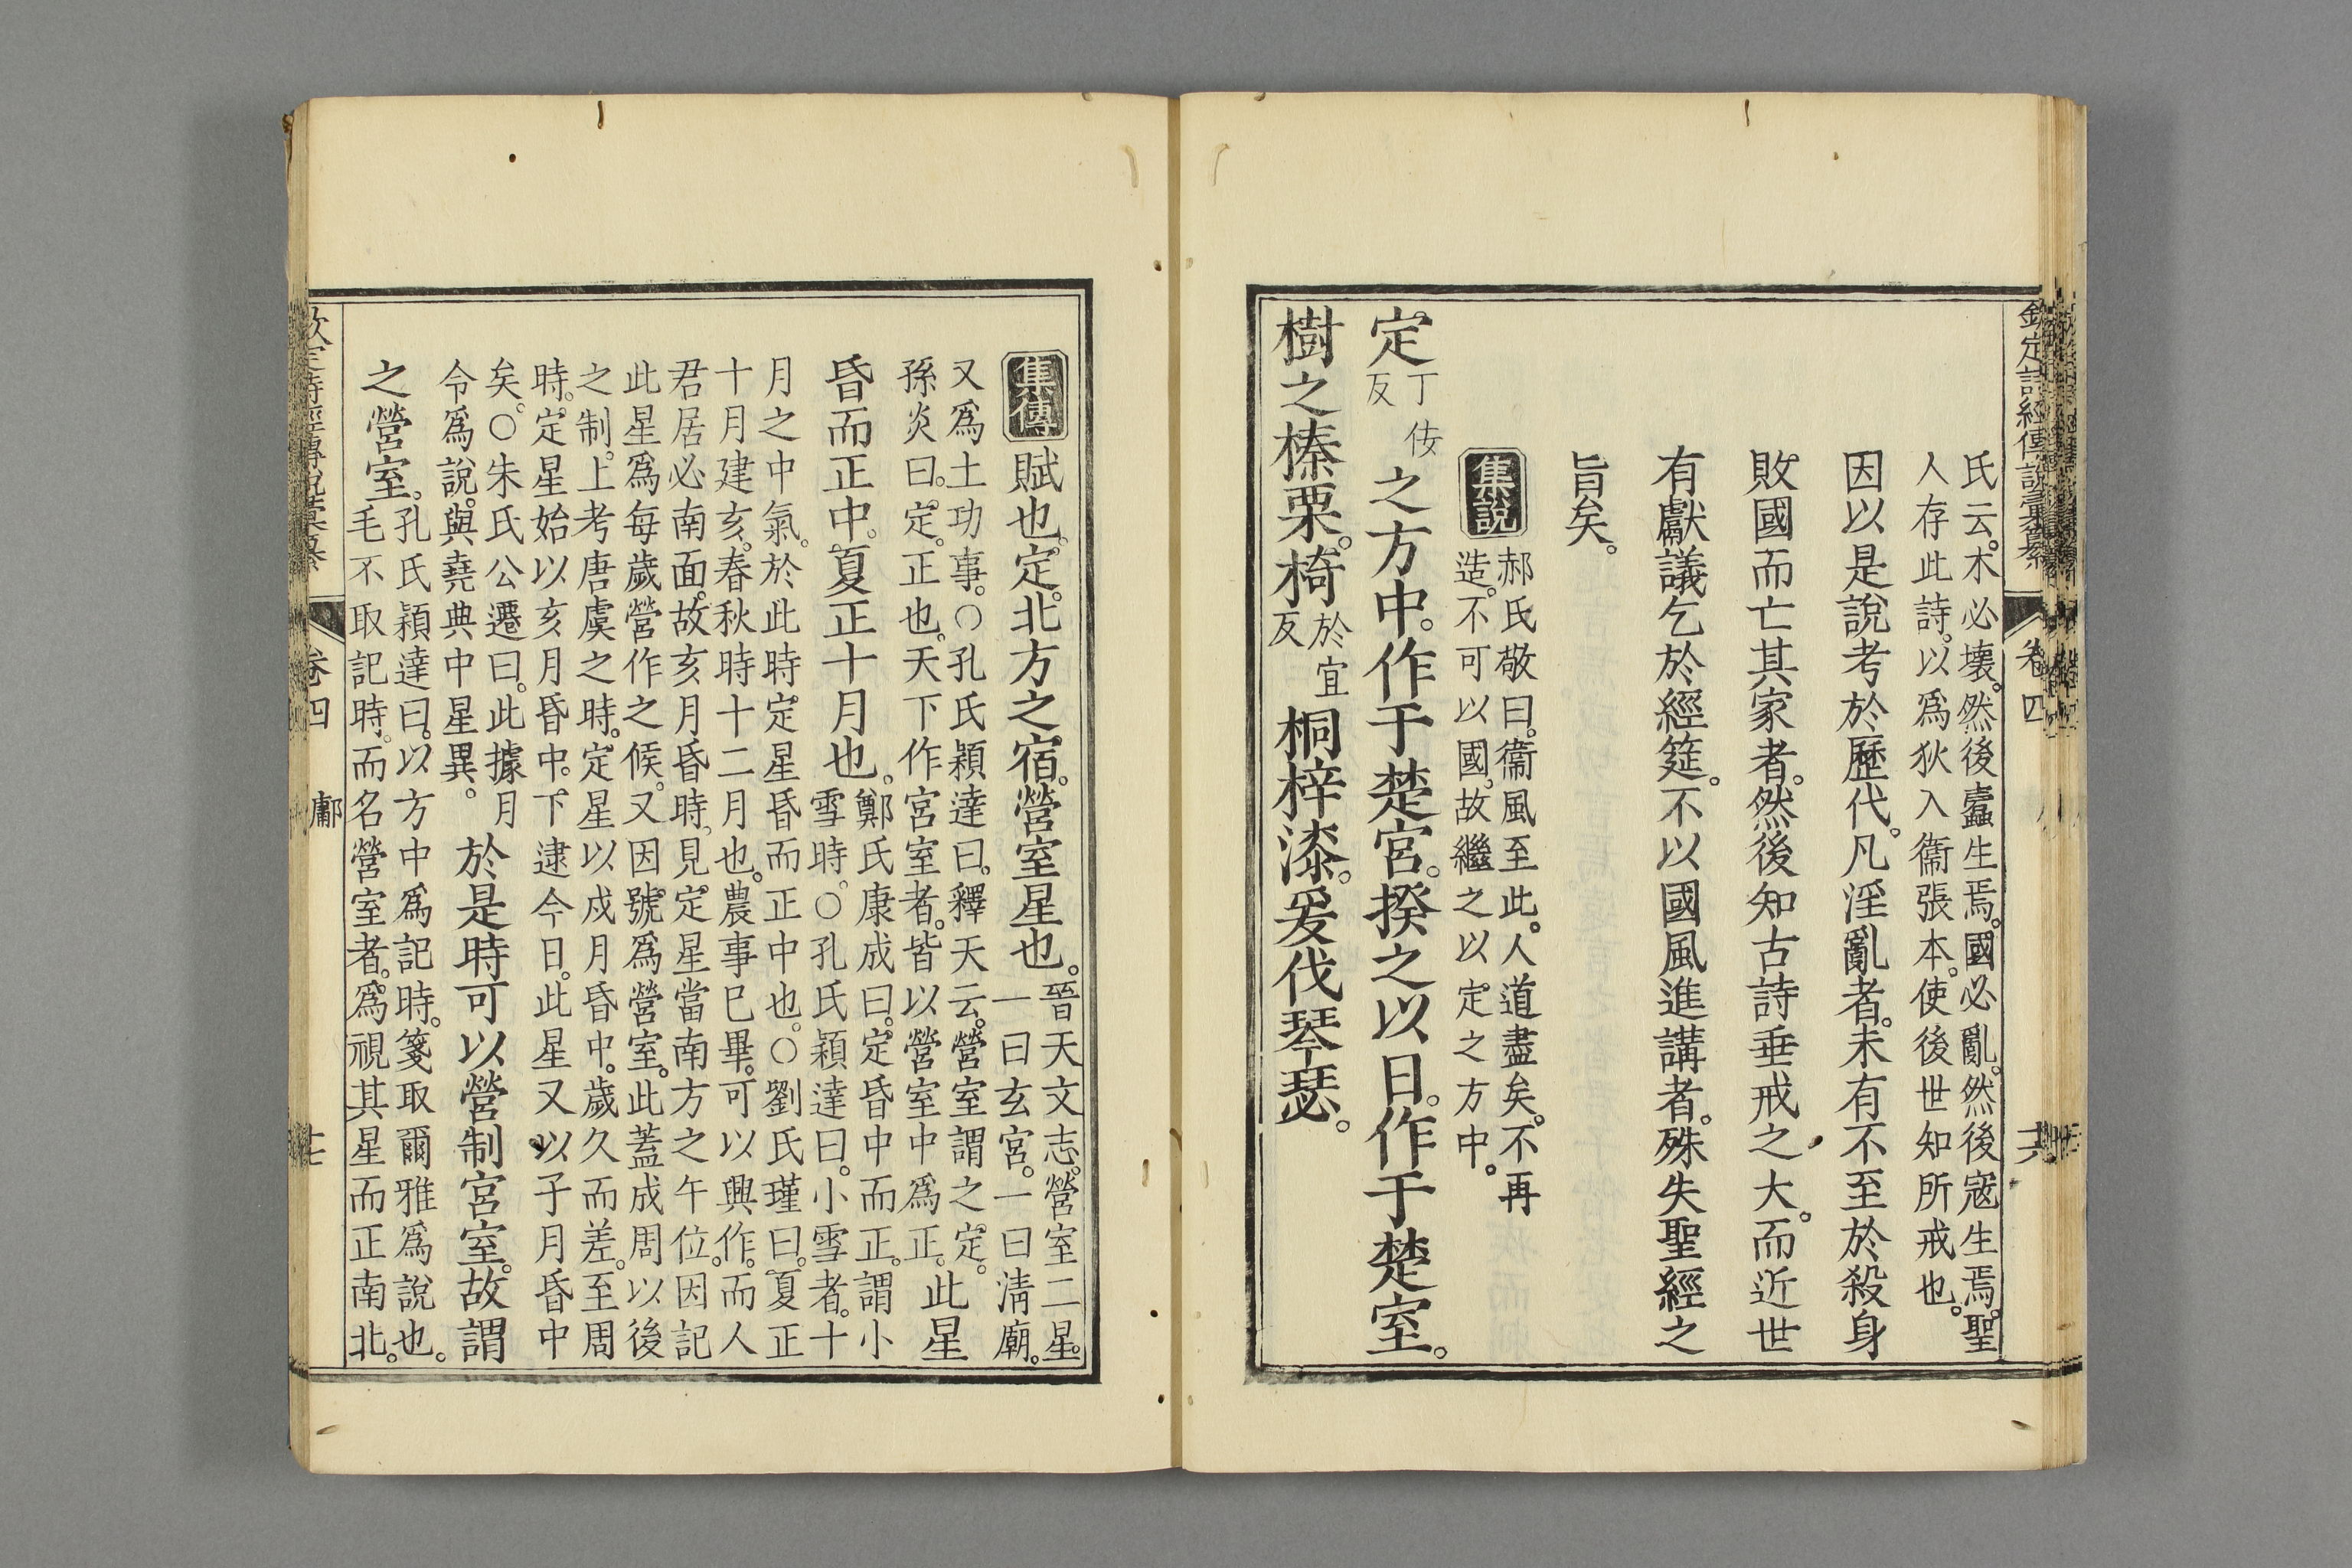 欽定詩經傳說彙纂 卷四
氏云。木必壞。然後蠹生焉。國必亂。然後寇生焉。聖
人存此詩。以爲狄入衞張本。使後世知所戒也。
因以是說考於歷代。凡淫亂者。未有不至於殺身
敗國而亡其家者。然後知古詩垂戒之大。而近世
有獻議乞於經筵。不以國風進講者。殊失聖經之
旨矣。
集說
郝氏敬曰。衞風至此。人道盡矣。不再
造。不可以國。故繼之以定之方中。
定丁佞反之方中。作于楚宮。揆之以日。作于楚室。
樹之榛栗。椅於宜反桐梓漆。爰伐琴瑟。
集傳
賦也。定。北方之宿。營室星也。
晉天文志。營室二星。
一曰玄宮。一曰淸廟。
又爲土功事。○孔氏穎達曰。釋天云。營室謂之定。
孫炎曰。定。正也。天下作宮室者。皆以營室中爲正。
此星
昏而正中。夏正十月也。
鄭氏康成曰。定昏中而正。謂小
雪時。○孔氏穎達曰。小雪者。十
月之中氣。於此時定星昏而正中也。○劉氏瑾曰。夏正
十月建亥。春秋時十二月也。農事已畢。可以興作。而人
君居必南面。故亥月昏時。見定星當南方之午位。因記
此星爲每歲營作之候。又因號爲營室。此蓋成周以後
之制。上考唐虞之時。定星以戌月昏中。歲久而差。至周
時。定星始以亥月昏中。下逮今日。此星又以子月昏中
矣。○朱氏公遷曰。此據月
令爲說。與堯典中星異。
於是時可以營制宮室。故謂
之營室。
孔氏穎達曰。以方中爲記時。箋取爾雅爲說也。
毛不取記時。而名營室者。爲視其星而正南北。
卷四 鄘